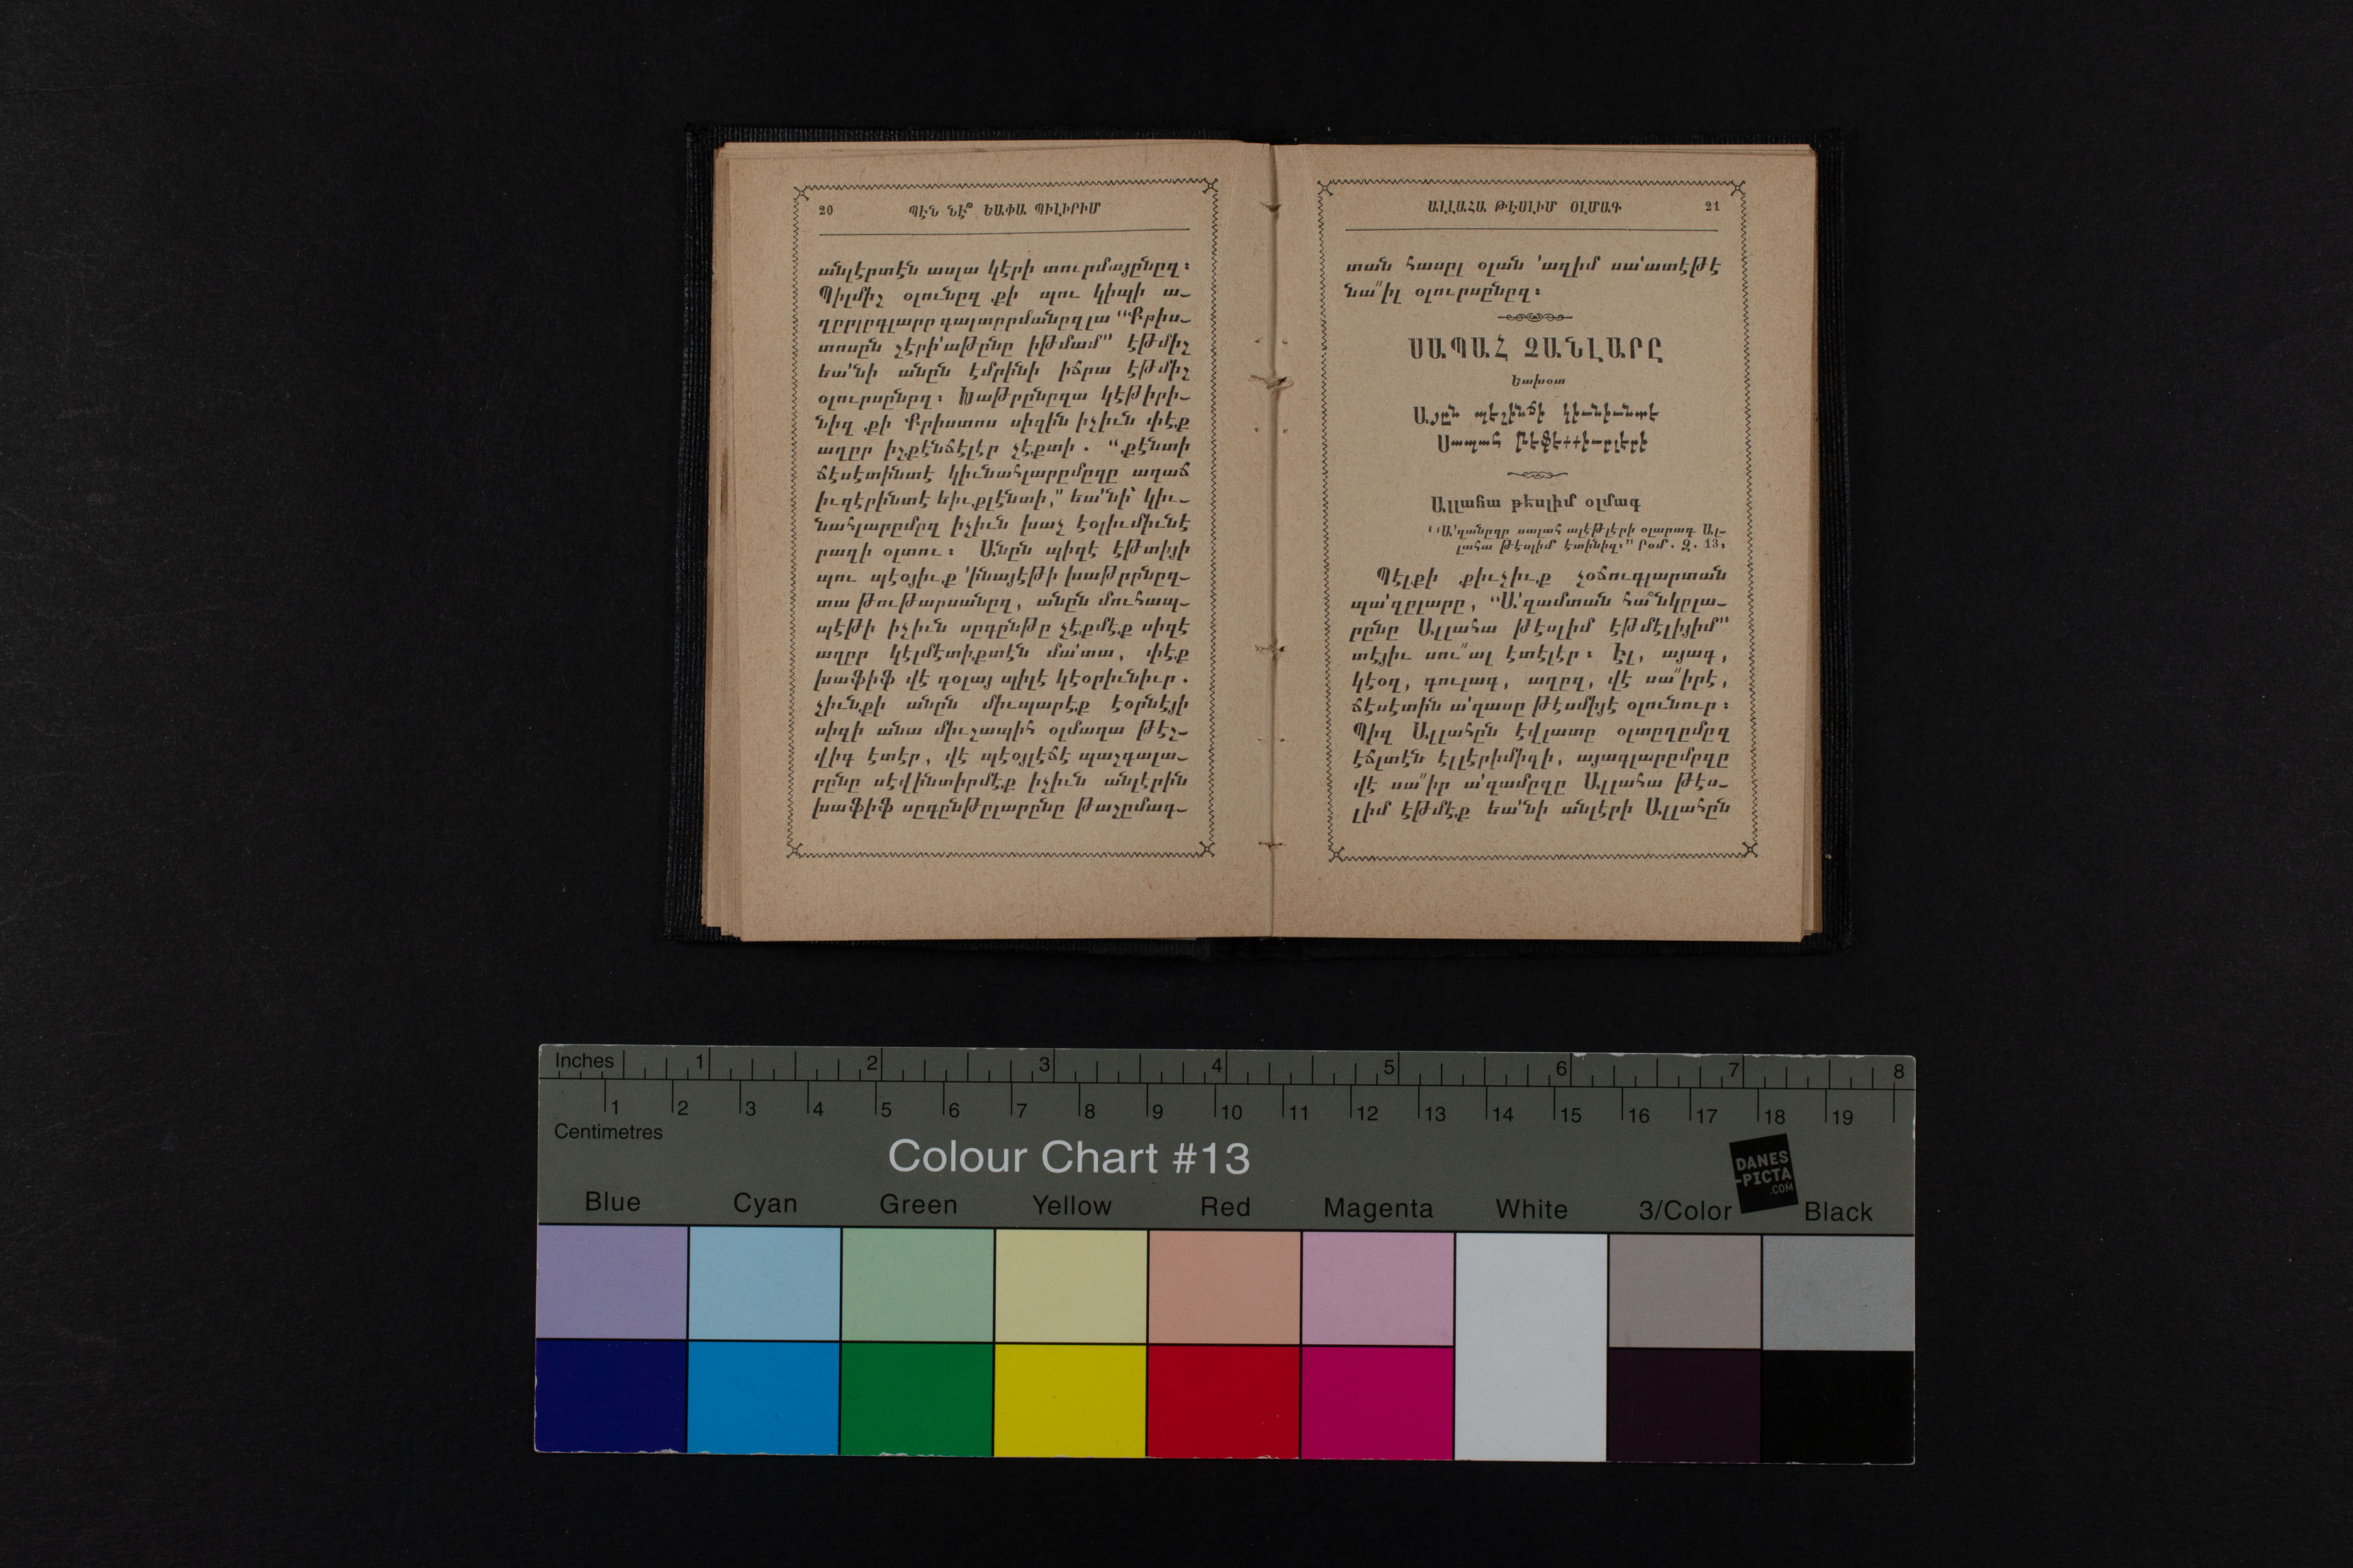 20 ՊԷՆ ՆԷ՞ ԵԱՓԱ ՊԻԼԻՐԻՄ
անլէրտէն ասլա կէրի տուրմայընըզ։
Պիլմիշ օլունըզ քի պու կիպի ա-
ղըրլըգլարը գալտըրմանըզլա “Քրիս-
տոսըն շէրի՛աթընը իթմամ” էթմիշ
եա՛նի անըն էմրինի իճրա էթմիշ
օլուրսընըզ։ Խաթըրընըզա կէթիրի-
նիզ քի Քրիստոս սիզին իչիւն փէք
աղըր իշքէնճէլէր չէքտի. “քէնտի
ճէսէտինտէ կիւնահլարըմըզը աղաճ
իւզէրինտէ եիւքլէնտի,” եա՛նի՝ կիւ-
նահլարըմըզ իչիւն խաչ էօլիւմիւնէ
րազի օլտու։ Անըն պիզէ էթտիյի
պու պէօյիւք ՛ինայէթի խաթըրընըզ-
տա թութարսանըզ, անըն մուհապ-
պէթի իչիւն սըգընթը չէքմէք սիզէ
աղըր կէլմէտիքտէն մա՛տա, փէք
խաֆիֆ վէ գօլայ պիլէ կէօրիւնիւր.
չիւնքի անըն միւպարէք էօրնէյի
սիզի անա միւշապիհ օլմաղա թէշ-
վիգ էտէր, վէ պէօյլէճէ պաշգալա-
րընը սէվինտիրմէք իչիւն անլէրին
խաֆիֆ սըգընթըլարընը թաշըմագ-
ԱԼԼԱՀԱ ԹԷՍԼԻՄ ՕԼՄԱԳ 21
տան հասըլ օլան ՛ազիմ սա՛ատէթէ
նա՛՛իլ օլուրսընըզ։
ՍԱՊԱՀ ԶԱՆԼԱՐԸ
Եախօտ
Այըն պէշինճի կիւնիւնտէ
Սապահ Թէֆէքքիւրլէրի
Ալլահա թեսլիմ օլմագ
“Ա՛զանըզը սալահ ալէթլէրի օլարագ Ալ-
լահա թէսլիմ էտինիզ,” Րօմ. Զ. 13,
Պէլքի քիւչիւք չօճուգլարտան
պա՛զըլարը, “Ա՛զամտան հա՞նկըլա-
րընը Ալլահա թէսլիմ էթմէլիյիմ”
տէյիւ սու՛՛ալ էտէլէր։ Էլ, այագ,
կէօզ, գուլագ, աղըզ, վէ սա՛՛իրէ,
ճէսէտին ա՛զասը թէսմիյէ օլունուր։
Պիզ Ալլահըն էվլատը օլտըղըմըզ
էճլտէն էլլէրիմիզի, այագլարըմըզը
վէ սա՛՛իր ա՛զամըզը Ալլահա թէս-
լիմ էթմէք եա՛նի անլէրի Ալլահըն
Inches 1 2 3 4 5 6 7 8
1 2 3 4 5 6 7 8 9 10 11 12 13 14 15 16 17 18 19
Centimetres
Colour Chart #13
DANES
-PICTA
.COM
Blue Cyan Green Yellow Red Magenta White 3/Color Black